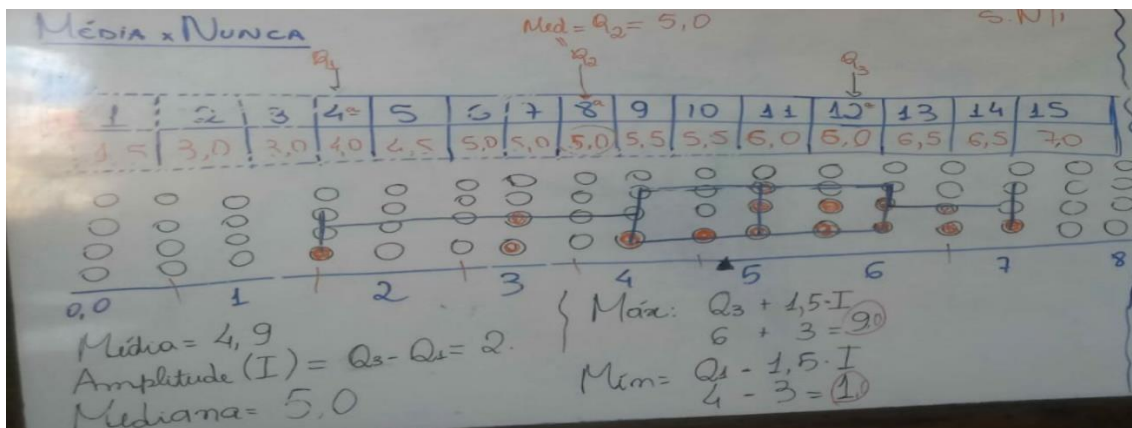 MÉDIA x NUNCA
Med = Q2 = 5,0
Q1
Q2
Q3
1 2 3 4ª 5 6 7 8ª 9 10 11 12ª 13 14 15
1,5 3,0 3,0 4,0 4,5 5,0 5,0 5,0 5,5 5,5 6,0 6,0 6,5 6,5 7,0
0,0 1 2 3 4 5 6 7 8
Média = 4,9
Amplitude (I) = Q3 - Q1 = 2.
Mediana = 5,0
Máx: Q3 + 1,5·I
6 + 3 = 9,0
Mín = Q1 - 1,5·I
4 - 3 = 1,0